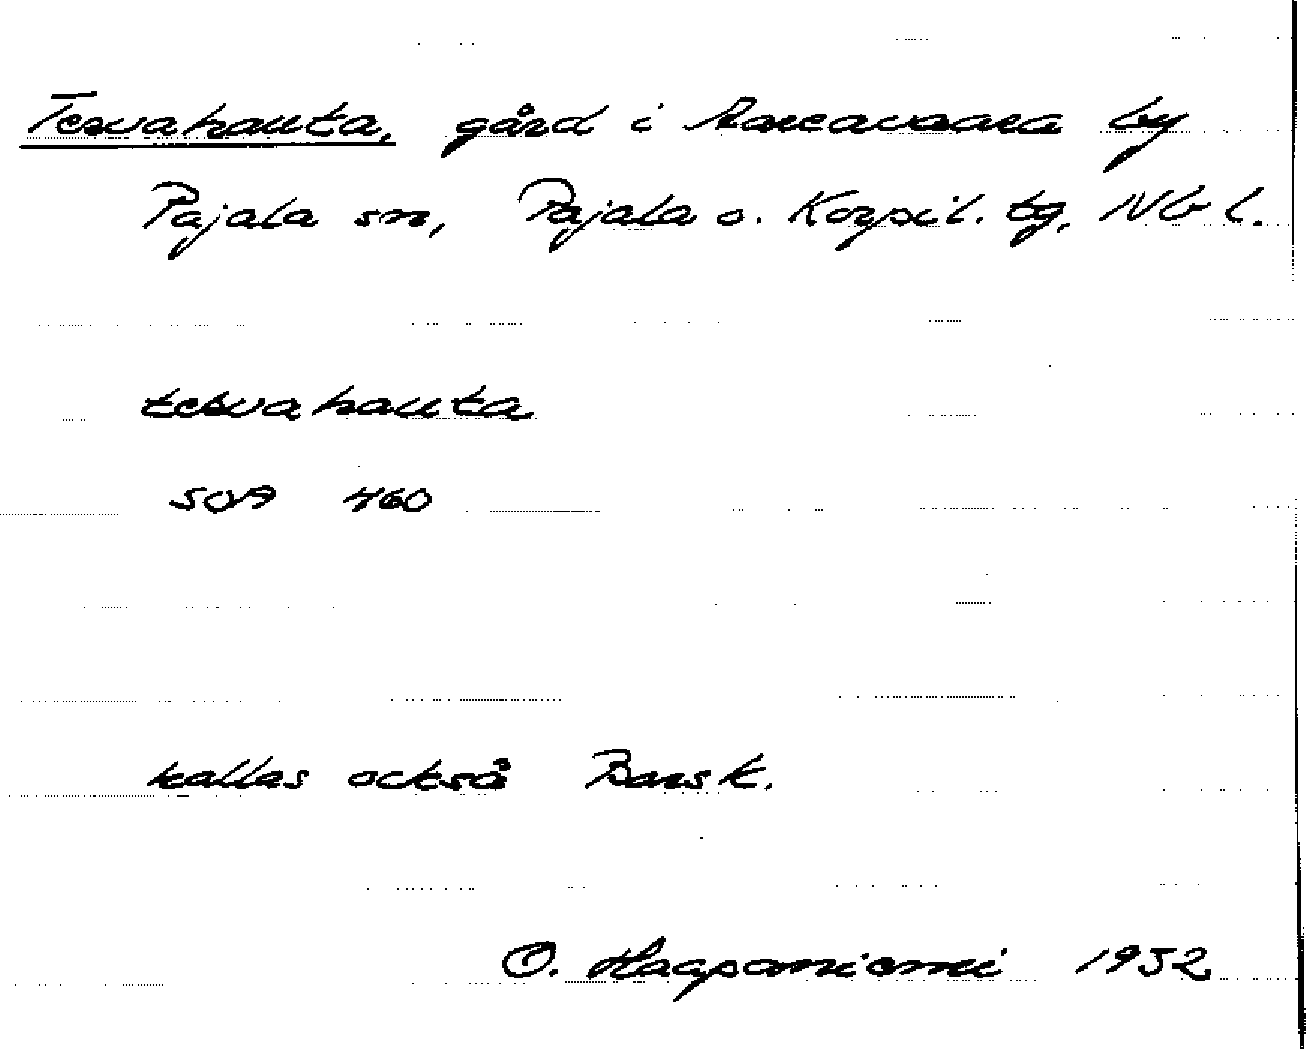 Tervahauta, gård i Aareavaara by
Pajala sn, Pajala o. Korpil. tg, Nb l.
tervahauta
SOA 460
kallas också Barsk.
O. Haapaniemi 1952